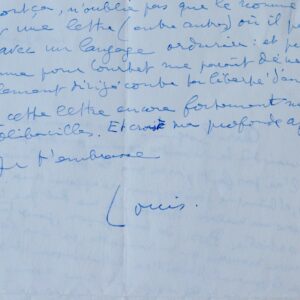 ça, n'oublie pas que le nommé
une lettre (entre autres) où il p
avec un langage ordurier : et p
me pour Courbet me paraît dén
lement dirigé contre
cette lettre encore fortement
Et crois ma profonde a
Je t'embrasse
Louis.